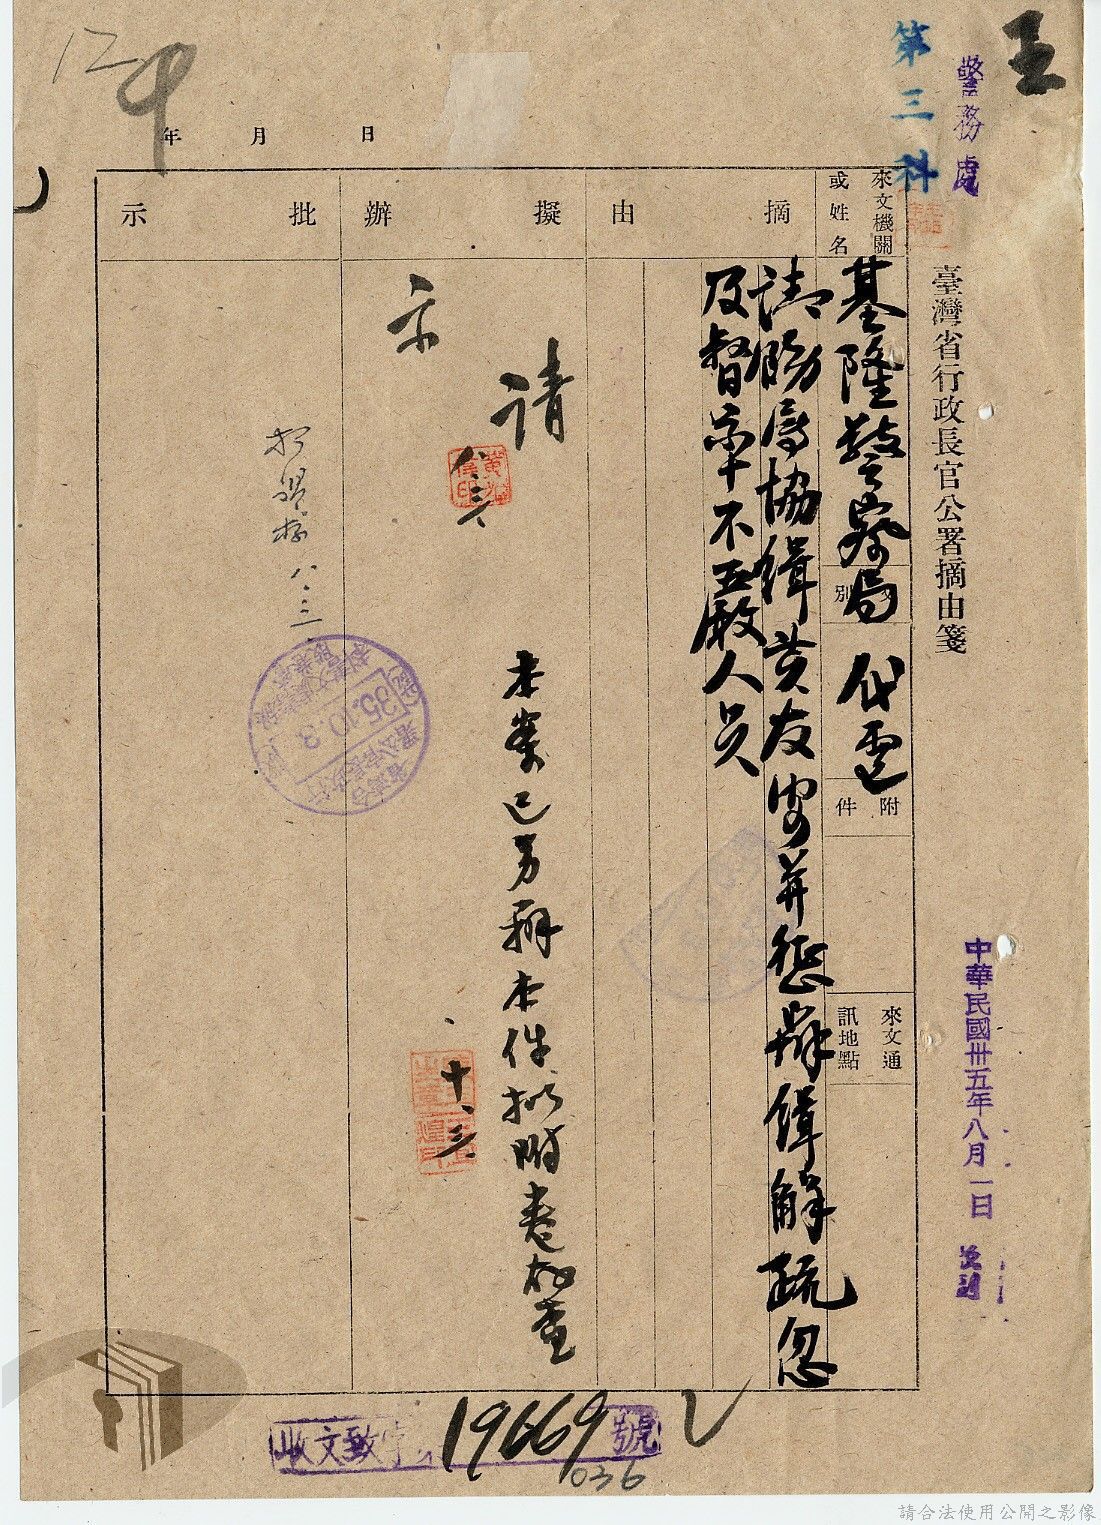 王
警務處
第三科
臺灣省行政長官公署摘由箋
中華民國卅五年八月一日
年 月 日
來文機關
或姓名
基隆警察局 代電
別
附
件
來文通
訊地點
摘 由
請飭屬協緝黃友安并懲辦緝解疏忽
及督率不嚴人員
擬 辦
請
示
八、三、
本案已另辦本件擬附卷存查
十、三、
批 示
八、三
35.10.3
收文致字
19669
號
036
請合法使用公開之影像